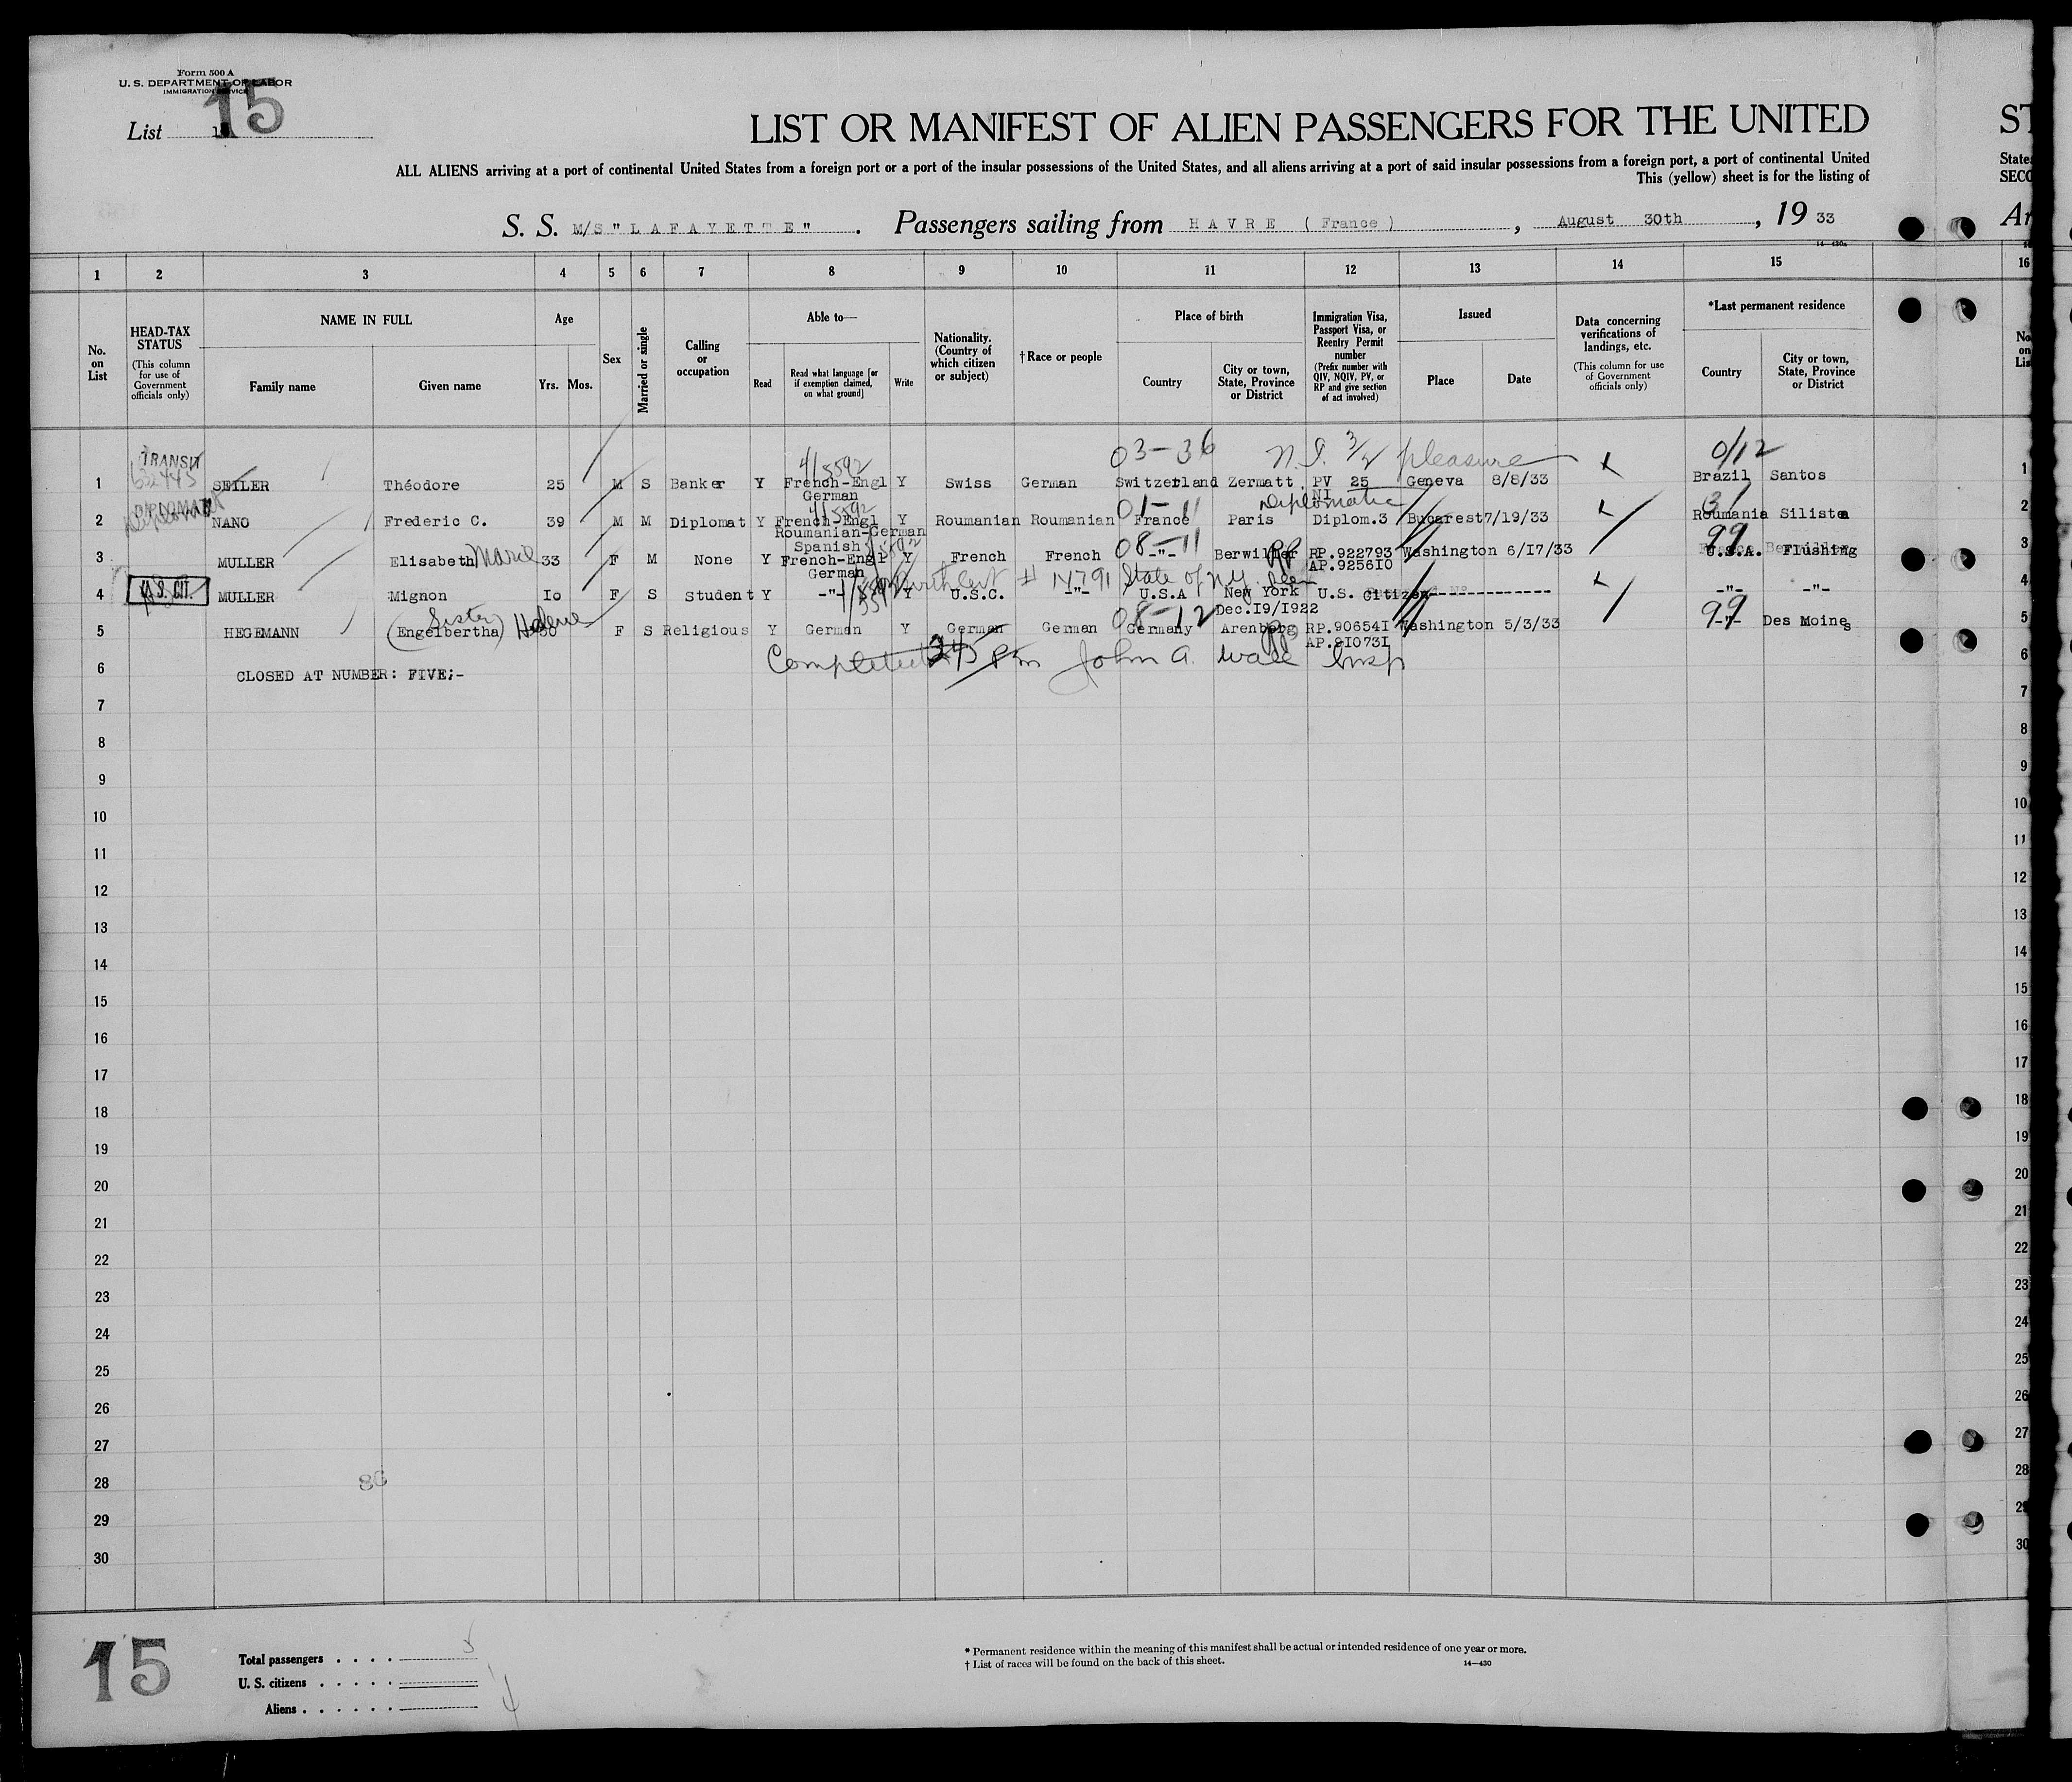 Form 500 A
U. S. DEPARTMENT OF LABOR
IMMIGRATION SERVICE
List 15
LIST OR MANIFEST OF ALIEN PASSENGERS FOR THE UNITED
ALL ALIENS arriving at a port of continental United States from a foreign port or a port of the insular possessions of the United States, and all aliens arriving at a port of said insular possessions from a foreign port, a port of continental United
This (yellow) sheet is for the listing of
S. S. M/S "LAFAYETTE" . Passengers sailing from HAVRE (France) , August 30th , 19 33
14-430a
1 2 3 4 5 6 7 8 9 10 11 12 13 14 15 16
No. on List
HEAD-TAX STATUS
(This column for use of Government officials only)
NAME IN FULL
Family name
Given name
Age
Yrs. Mos.
Sex
Married or single
Calling or occupation
Able to—
Read
Read what language [or if exemption claimed, on what ground]
Write
Nationality. (Country of which citizen or subject)
†Race or people
Place of birth
Country
City or town, State, Province or District
Immigration Visa, Passport Visa, or Reentry Permit number
(Prefix number with QIV, NQIV, PV, or RP and give section of act involved)
Issued
Place
Date
Data concerning verifications of landings, etc.
(This column for use of Government officials only)
*Last permanent residence
Country
City or town, State, Province or District
TRANSIT 4/5592 03-36 N.I. 3/2 pleasure 0/12
1 SEILER Théodore 25 M S Banker Y French-Engl Y Swiss German Switzerland Zermatt PV 25 Geneva 8/8/33 Brazil Santos 1
German NI
DIPLOMAT 4/5592 01-11 Diplomatic 31
2 NANO Frederic C. 39 M M Diplomat Y French-Engl Y Roumanian Roumanian France Paris Diplom.3 Bucarest 7/19/33 Roumania Silistea 2
Roumanian-German
Spanish 08-11 99
3 MULLER Elisabeth Marie 33 F M None Y French-Engl Y French French -"- Berwiller RP.922793 Washington 6/17/33 U.S.A. Flushing 3
German AP.925610
Birth Cert # 14791 State of N.Y. seen
U.S. CIT.
4 MULLER Mignon Io F S Student Y -"- Y U.S.C. -"- U.S.A New York U.S. Citizen -"- -"- 4
Dec.I9/I922
Sister 08-12 99
5 HEGEMANN (Engelbertha) Helene 50 F S Religious Y German Y German German Germany Arenberg RP.90654I Washington 5/3/33 -"- Des Moines 5
AP.9I073I
Completed 245 Pm John A. Wall Insp
6 CLOSED AT NUMBER: FIVE;- 6
7 7
8 8
9 9
10 10
11 11
12 12
13 13
14 14
15 15
16 16
17 17
18 18
19 19
20 20
21 21
22 22
23 23
24 24
25 25
26 26
27 27
28 86 28
29 29
30 30
15
Total passengers . . . . 5
U. S. citizens . . . . . 1
Aliens . . . . . . 4
* Permanent residence within the meaning of this manifest shall be actual or intended residence of one year or more.
† List of races will be found on the back of this sheet.
14—430